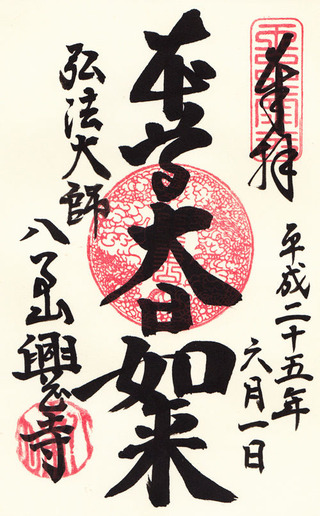 奉拝
平成二十五年
六月一日
本尊大日如来
弘法大師
八事山興正寺